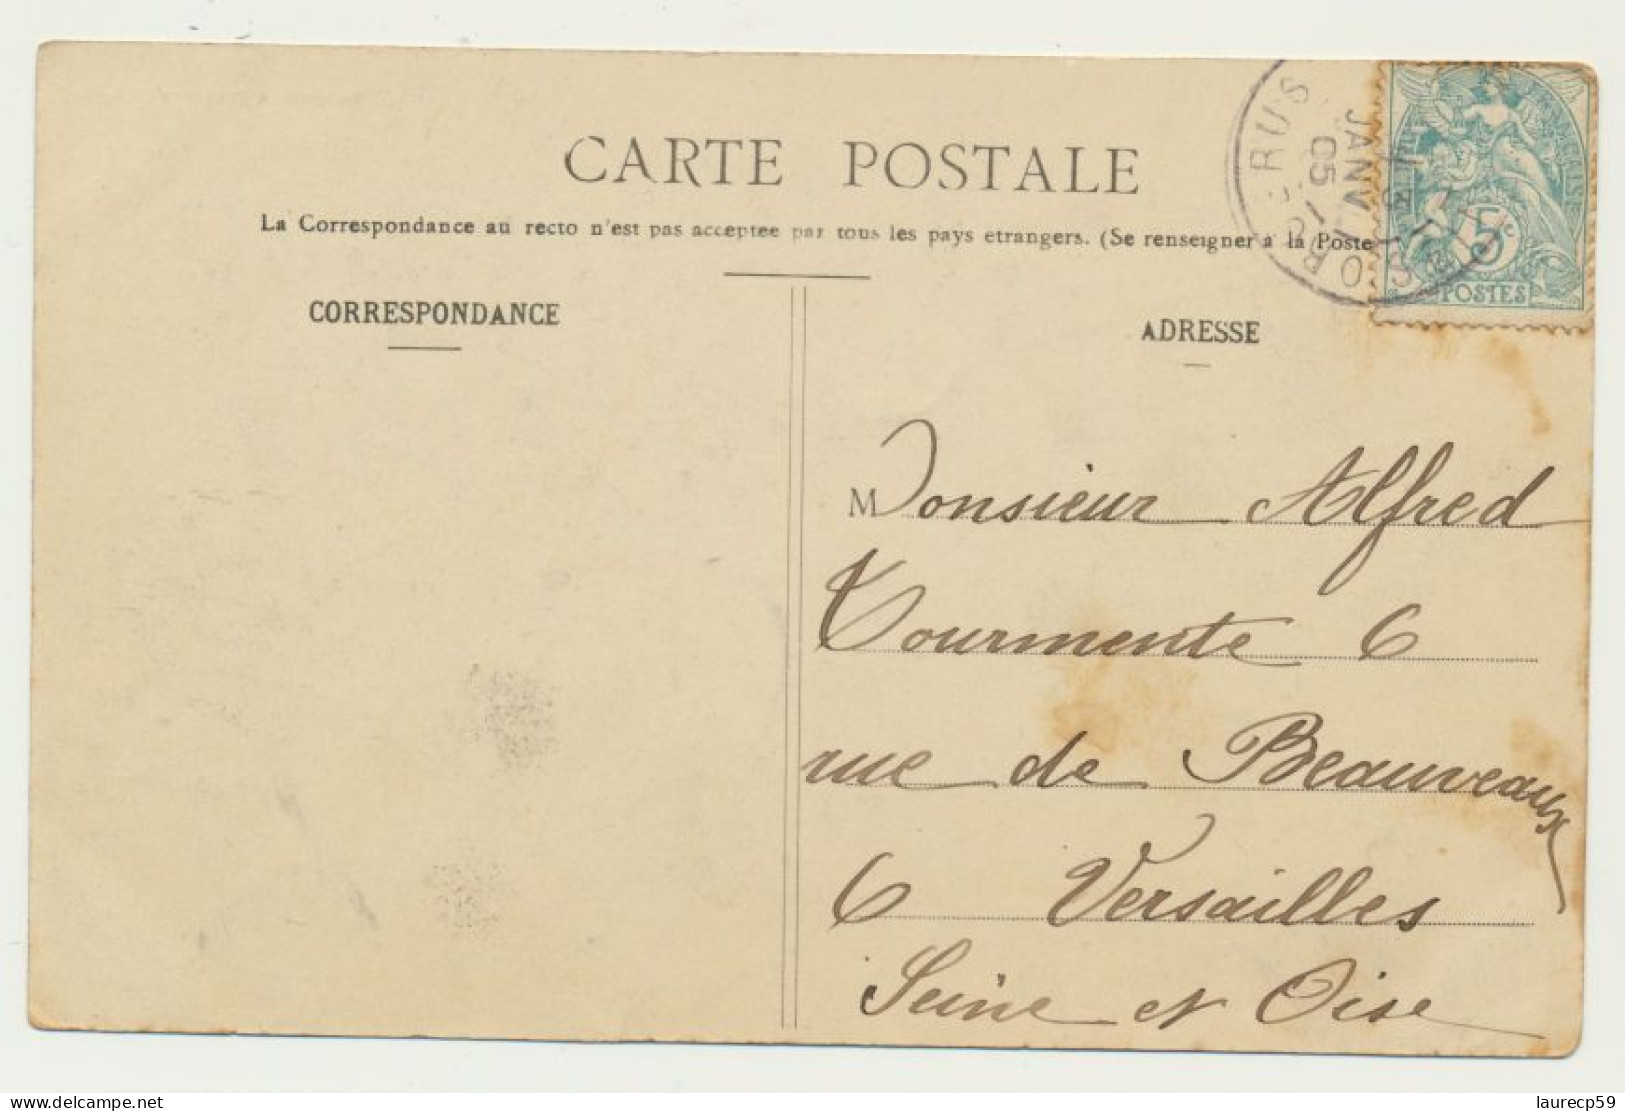 CARTE POSTALE
La Correspondance au recto n'est pas acceptee par tous les pays etrangers. (Se renseigner à la Poste
CORRESPONDANCE
ADRESSE
JANV
05
5c
POSTES
Monsieur Alfred
Tourmente 6
rue de Beauveaux
6 Versailles
Seine et Oise
www.delcampe.net
laurecp59